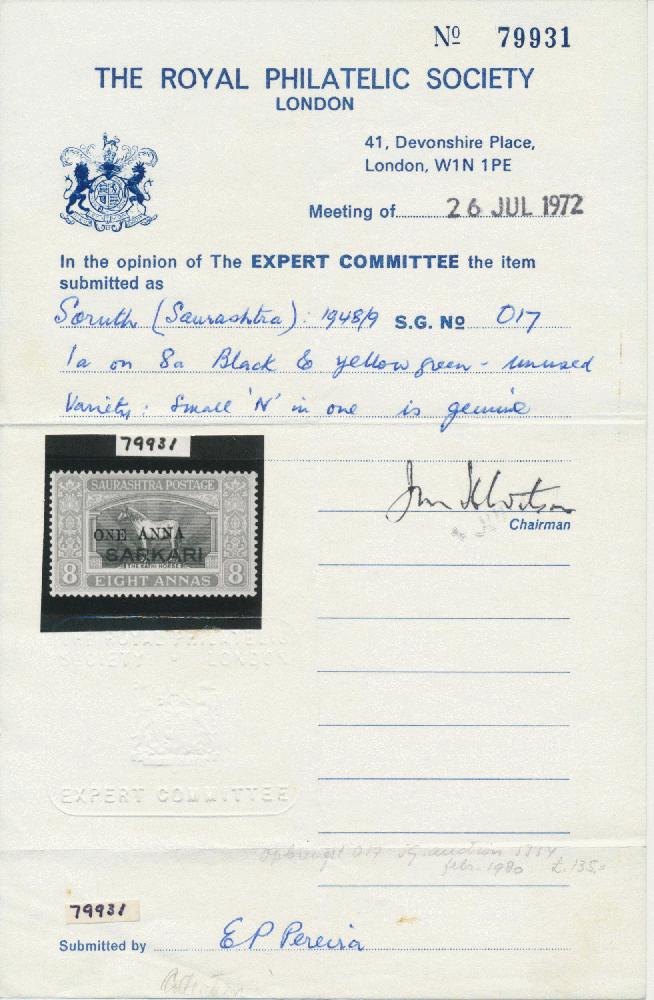 Nº 79931
THE ROYAL PHILATELIC SOCIETY
LONDON
41, Devonshire Place,
London, W1N 1PE
Meeting of 26 JUL 1972
In the opinion of The EXPERT COMMITTEE the item
submitted as
Soruth (Saurashtra): 1948/9 S.G. Nº O17
1a on 8a Black & yellow green - unused
Variety: Small 'N' in one is genuine
79931
SAURASHTRA POSTAGE
ONE ANNA
SARKARI
THE KATHI HORSE
8 EIGHT ANNAS 8
Chairman
THE ROYAL PHILATELIC
SOCIETY LONDON
EXPERT COMMITTEE
O17 auction
febr. 1980 £. 135.=
79931
Submitted by E P Pereira